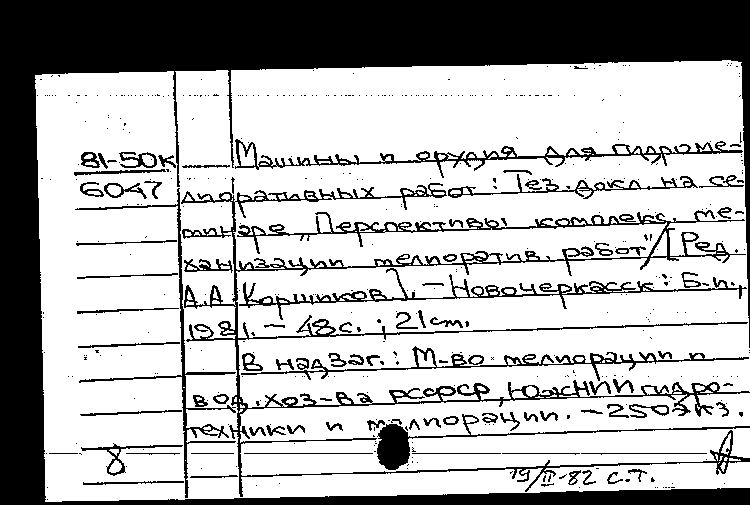 81-50к Машины и орудия для гидроме-
6047 лиоративных работ : Тез. докл. на се-
минаре „Перспективы комплекс. ме-
ханизации мелиоратив. работ"/[Ред.
А.А Коршиков]. – Новочеркасск : Б.и.,
1981. – 48с. ; 21см.
В надзаг.: М-во мелиорации и
вод. хоз-ва РСФСР, ЮжНИИ гидро-
техники и мелиорации. – 250экз.
8
19/II-82 с.т.